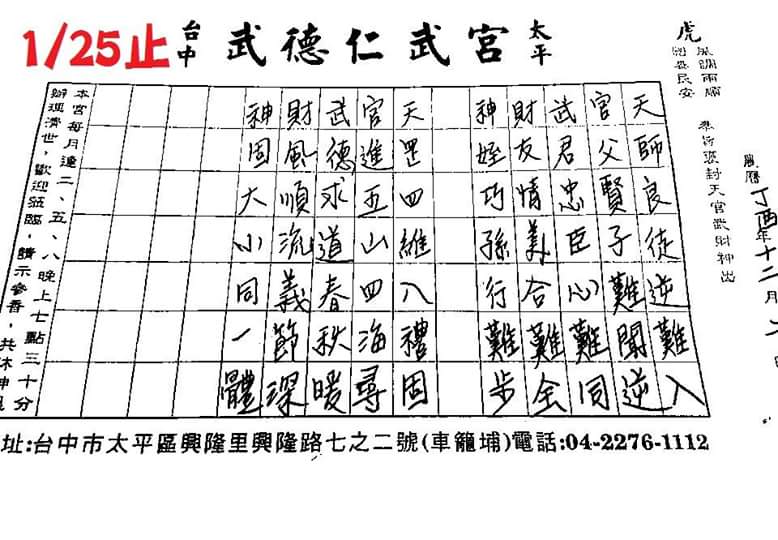 1/25止
台中
武德仁武宮
太平
虎
風調雨順
國泰民安
農曆丁酉年十二月
天師良徒逆難入
官父賢子難聞逆
武君忠臣心難同
財友情美合難全
神姪巧孫行難步
天罡四維入禮固
官進五山四海尋
武德求道春秋暖
財風順流義節深
神固大小同一體
本宮每月逢二、五、八晚上七點三十分
辦理濟世，歡迎蒞臨，請示參香，共沐神
址:台中市太平區興隆里興隆路七之二號(車籠埔)電話:04-2276-1112